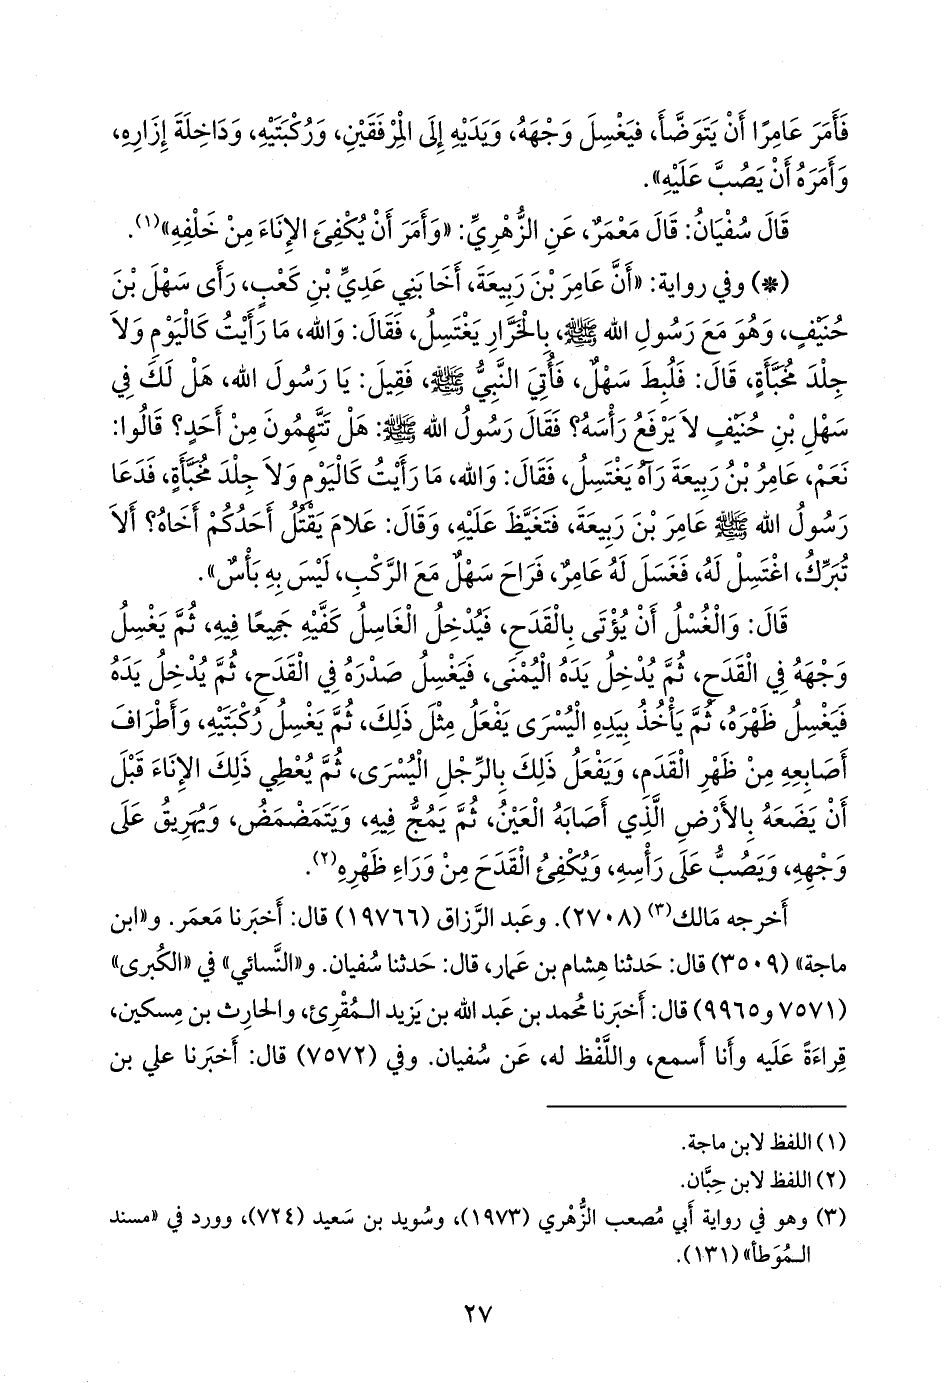 فَأَمَرَ عَامِرًا أَنْ يَتَوَضَّأَ، فَيَغْسِلَ وَجْهَهُ، وَيَدَيْهِ إِلَى الْمِرْفَقَيْنِ، وَرُكْبَتَيْهِ، وَدَاخِلَةَ إِزَارِهِ،
وَأَمَرَهُ أَنْ يَصُبَّ عَلَيْهِ».
قَالَ سُفْيَانُ: قَالَ مَعْمَرٌ، عَنِ الزُّهْرِيِّ: «وَأَمَرَ أَنْ يُكْفِئَ الإِنَاءَ مِنْ خَلْفِهِ»(١).
(*) وفي رواية: «أَنَّ عَامِرَ بْنَ رَبِيعَةَ، أَخَا بَنِي عَدِيِّ بْنِ كَعْبٍ، رَأَى سَهْلَ بْنَ
حُنَيْفٍ، وَهُوَ مَعَ رَسُولِ الله ﷺ، بِالْخَرَّارِ يَغْتَسِلُ، فَقَالَ: وَالله، مَا رَأَيْتُ كَالْيَوْمِ وَلاَ
جِلْدَ مُخَبَّأَةٍ، قَالَ: فَلُبِطَ سَهْلٌ، فَأُتِيَ النَّبِيُّ ﷺ، فَقِيلَ: يَا رَسُولَ الله، هَلْ لَكَ فِي
سَهْلِ بْنِ حُنَيْفٍ لاَ يَرْفَعُ رَأْسَهُ؟ فَقَالَ رَسُولُ الله ﷺ: هَلْ تَتَّهِمُونَ مِنْ أَحَدٍ؟ قَالُوا:
نَعَمْ، عَامِرُ بْنُ رَبِيعَةَ رَآهُ يَغْتَسِلُ، فَقَالَ: وَالله، مَا رَأَيْتُ كَالْيَوْمِ وَلاَ جِلْدَ مُخَبَّأَةٍ، فَدَعَا
رَسُولُ الله ﷺ عَامِرَ بْنَ رَبِيعَةَ، فَتَغَيَّظَ عَلَيْهِ، وَقَالَ: عَلامَ يَقْتُلُ أَحَدُكُمْ أَخَاهُ؟ أَلاَ
تُبَرِّكُ، اغْتَسِلْ لَهُ، فَغَسَلَ لَهُ عَامِرٌ، فَرَاحَ سَهْلٌ مَعَ الرَّكْبِ، لَيْسَ بِهِ بَأْسٌ».
قَالَ: وَالْغُسْلُ أَنْ يُؤْتَى بِالْقَدَحِ، فَيُدْخِلُ الْغَاسِلُ كَفَّيْهِ جَمِيعًا فِيهِ، ثُمَّ يَغْسِلُ
وَجْهَهُ فِي الْقَدَحِ، ثُمَّ يُدْخِلُ يَدَهُ الْيُمْنَى، فَيَغْسِلُ صَدْرَهُ فِي الْقَدَحِ، ثُمَّ يُدْخِلُ يَدَهُ
فَيَغْسِلُ ظَهْرَهُ، ثُمَّ يَأْخُذُ بِيَدِهِ الْيُسْرَى يَفْعَلُ مِثْلَ ذَلِكَ، ثُمَّ يَغْسِلُ رُكْبَتَيْهِ، وَأَطْرَافَ
أَصَابِعِهِ مِنْ ظَهْرِ الْقَدَمِ، وَيَفْعَلُ ذَلِكَ بِالرِّجْلِ الْيُسْرَى، ثُمَّ يُعْطِي ذَلِكَ الإِنَاءَ قَبْلَ
أَنْ يَضَعَهُ بِالأَرْضِ الَّذِي أَصَابَهُ الْعَيْنُ، ثُمَّ يَمُجُّ فِيهِ، وَيَتَمَضْمَضُ، وَيُهَرِيقُ عَلَى
وَجْهِهِ، وَيَصُبُّ عَلَى رَأْسِهِ، وَيُكْفِئُ الْقَدَحَ مِنْ وَرَاءِ ظَهْرِهِ(٢).
أَخرجه مَالك(٣) (٢٧٠٨). وعَبد الرَّزاق (١٩٧٦٦) قال: أَخبَرنا مَعمَر. و«ابن
ماجة» (٣٥٠٩) قال: حَدثنا هِشام بن عمار، قال: حَدثنا سُفيان. و«النَّسائي» في «الكُبرى»
(٧٥٧١ و٩٩٦٥) قال: أَخبَرنا مُحمد بن عَبد الله بن يَزيد الـمُقْرِئ، والحارِث بن مِسكين،
قِراءَةً عَلَيه وأَنا أَسمع، واللَّفْظ له، عَن سُفيان. وفي (٧٥٧٢) قال: أَخبَرنا علي بن
(١) اللفظ لابن ماجة.
(٢) اللفظ لابن حِبَّان.
(٣) وهو في رواية أَبي مُصعب الزُّهْري (١٩٧٣)، وسُويد بن سَعيد (٧٢٤)، وورد في «مسند
الـمُوَطأ» (١٣١).
٢٧